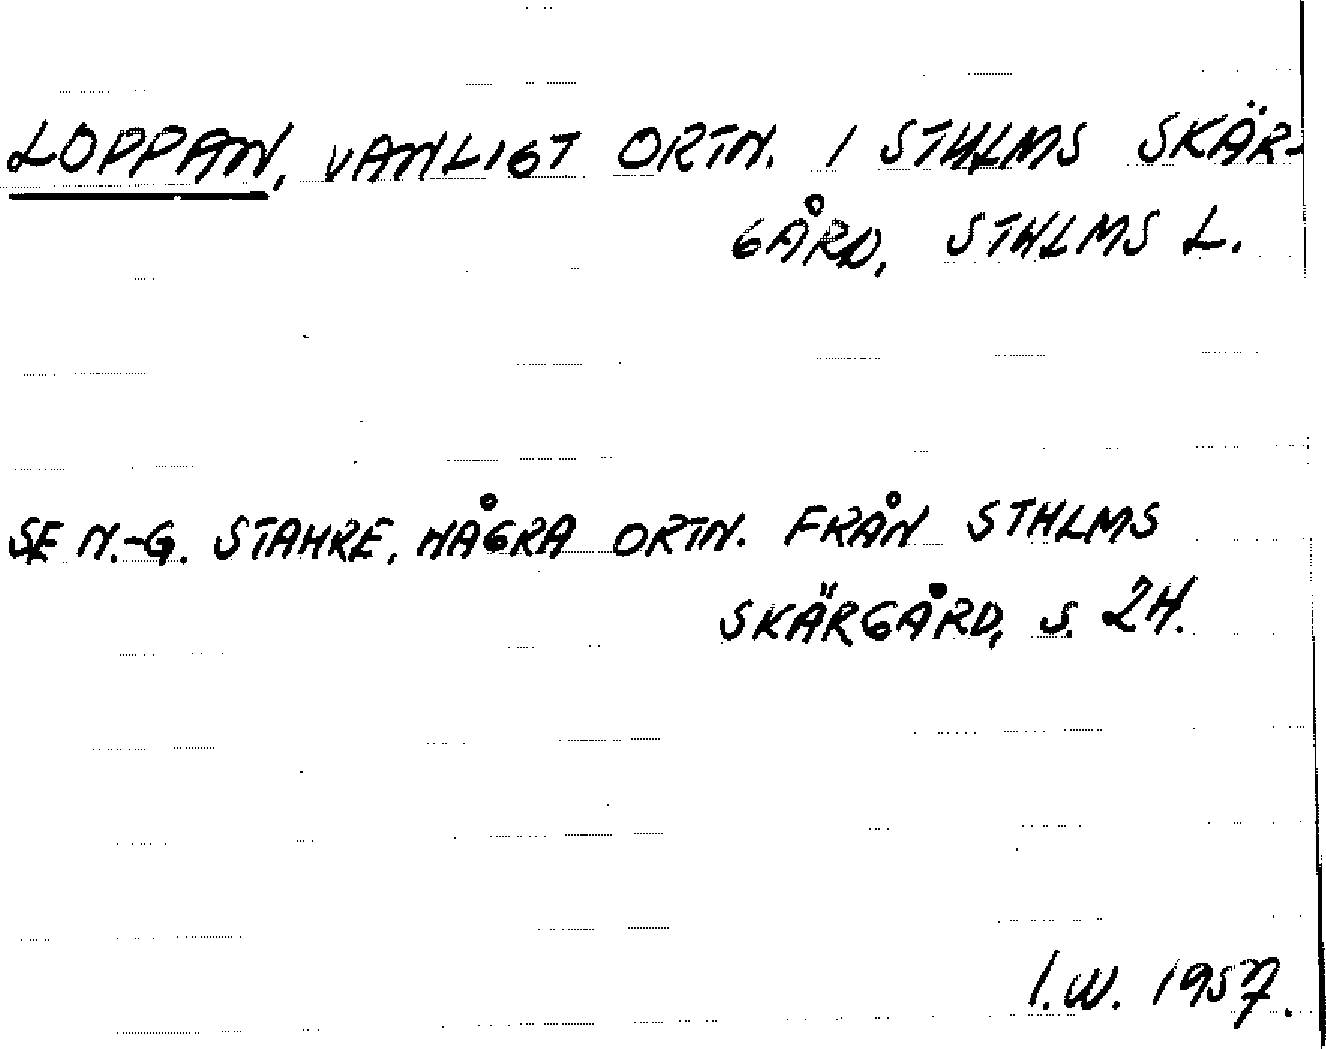 LOPPAN, VANLIGT ORTN. I STHLMS SKÄR-
GÅRD, STHLMS L.
SE N.-G. STAHRE, NÅGRA ORTN. FRÅN STHLMS
SKÄRGÅRD, S. 24.
I.W. 1957.